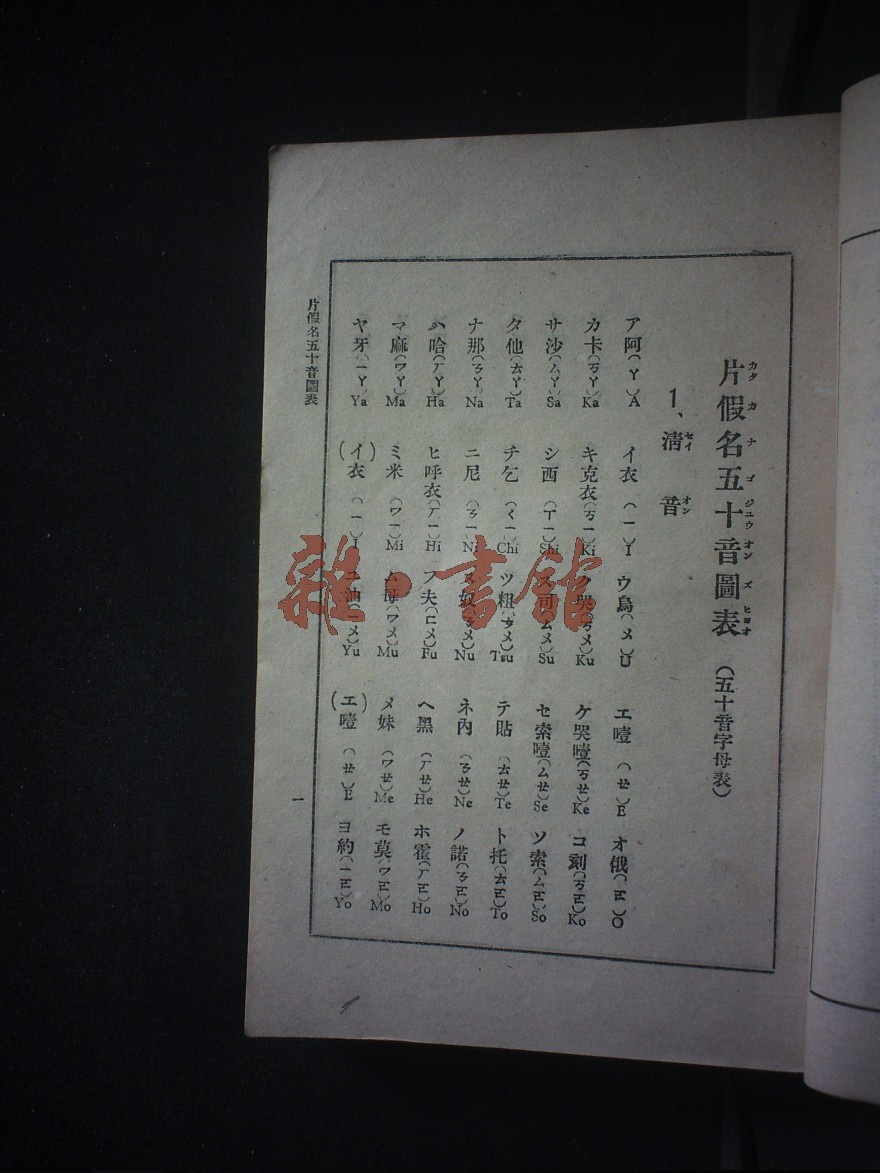 片假名五十音圖表（五十音字母表）
カタ カ ナ ゴ ジユウ オン ズ ヒヨオ
1、清音
セイ オン
ア阿(ㄚ)A イ衣(ㄧ)I ウ烏(ㄨ)U エ噎(ㄝ)E オ俄(ㄛ)O
カ卡(ㄎㄚ)Ka キ克衣(ㄎㄧ)Ki ク哭(ㄎㄨ)Ku ケ哭噎(ㄎㄝ)Ke コ剋(ㄎㄛ)Ko
サ沙(ㄙㄚ)Sa シ西(ㄒㄧ)Shi ス司(ㄙㄨ)Su セ索噎(ㄙㄝ)Se ソ索(ㄙㄛ)So
タ他(ㄊㄚ)Ta チ乞(ㄑㄧ)Chi ツ粗(ㄘㄨ)Tsu テ貼(ㄊㄝ)Te ト托(ㄊㄛ)To
ナ那(ㄋㄚ)Na ニ尼(ㄋㄧ)Ni ヌ奴(ㄋㄨ)Nu ネ內(ㄋㄝ)Ne ノ諾(ㄋㄛ)No
ハ哈(ㄏㄚ)Ha ヒ呼衣(ㄏㄧ)Hi フ夫(ㄈㄨ)Fu ヘ黑(ㄏㄝ)He ホ霍(ㄏㄛ)Ho
マ麻(ㄇㄚ)Ma ミ米(ㄇㄧ)Mi ム母(ㄇㄨ)Mu メ妹(ㄇㄝ)Me モ莫(ㄇㄛ)Mo
ヤ牙(ㄧㄚ)Ya (イ)衣(ㄧ)I ユ油(ㄧㄨ)Yu (エ)噎(ㄝ)E ヨ約(ㄧㄛ)Yo
片假名五十音圖表
一
雜·書館